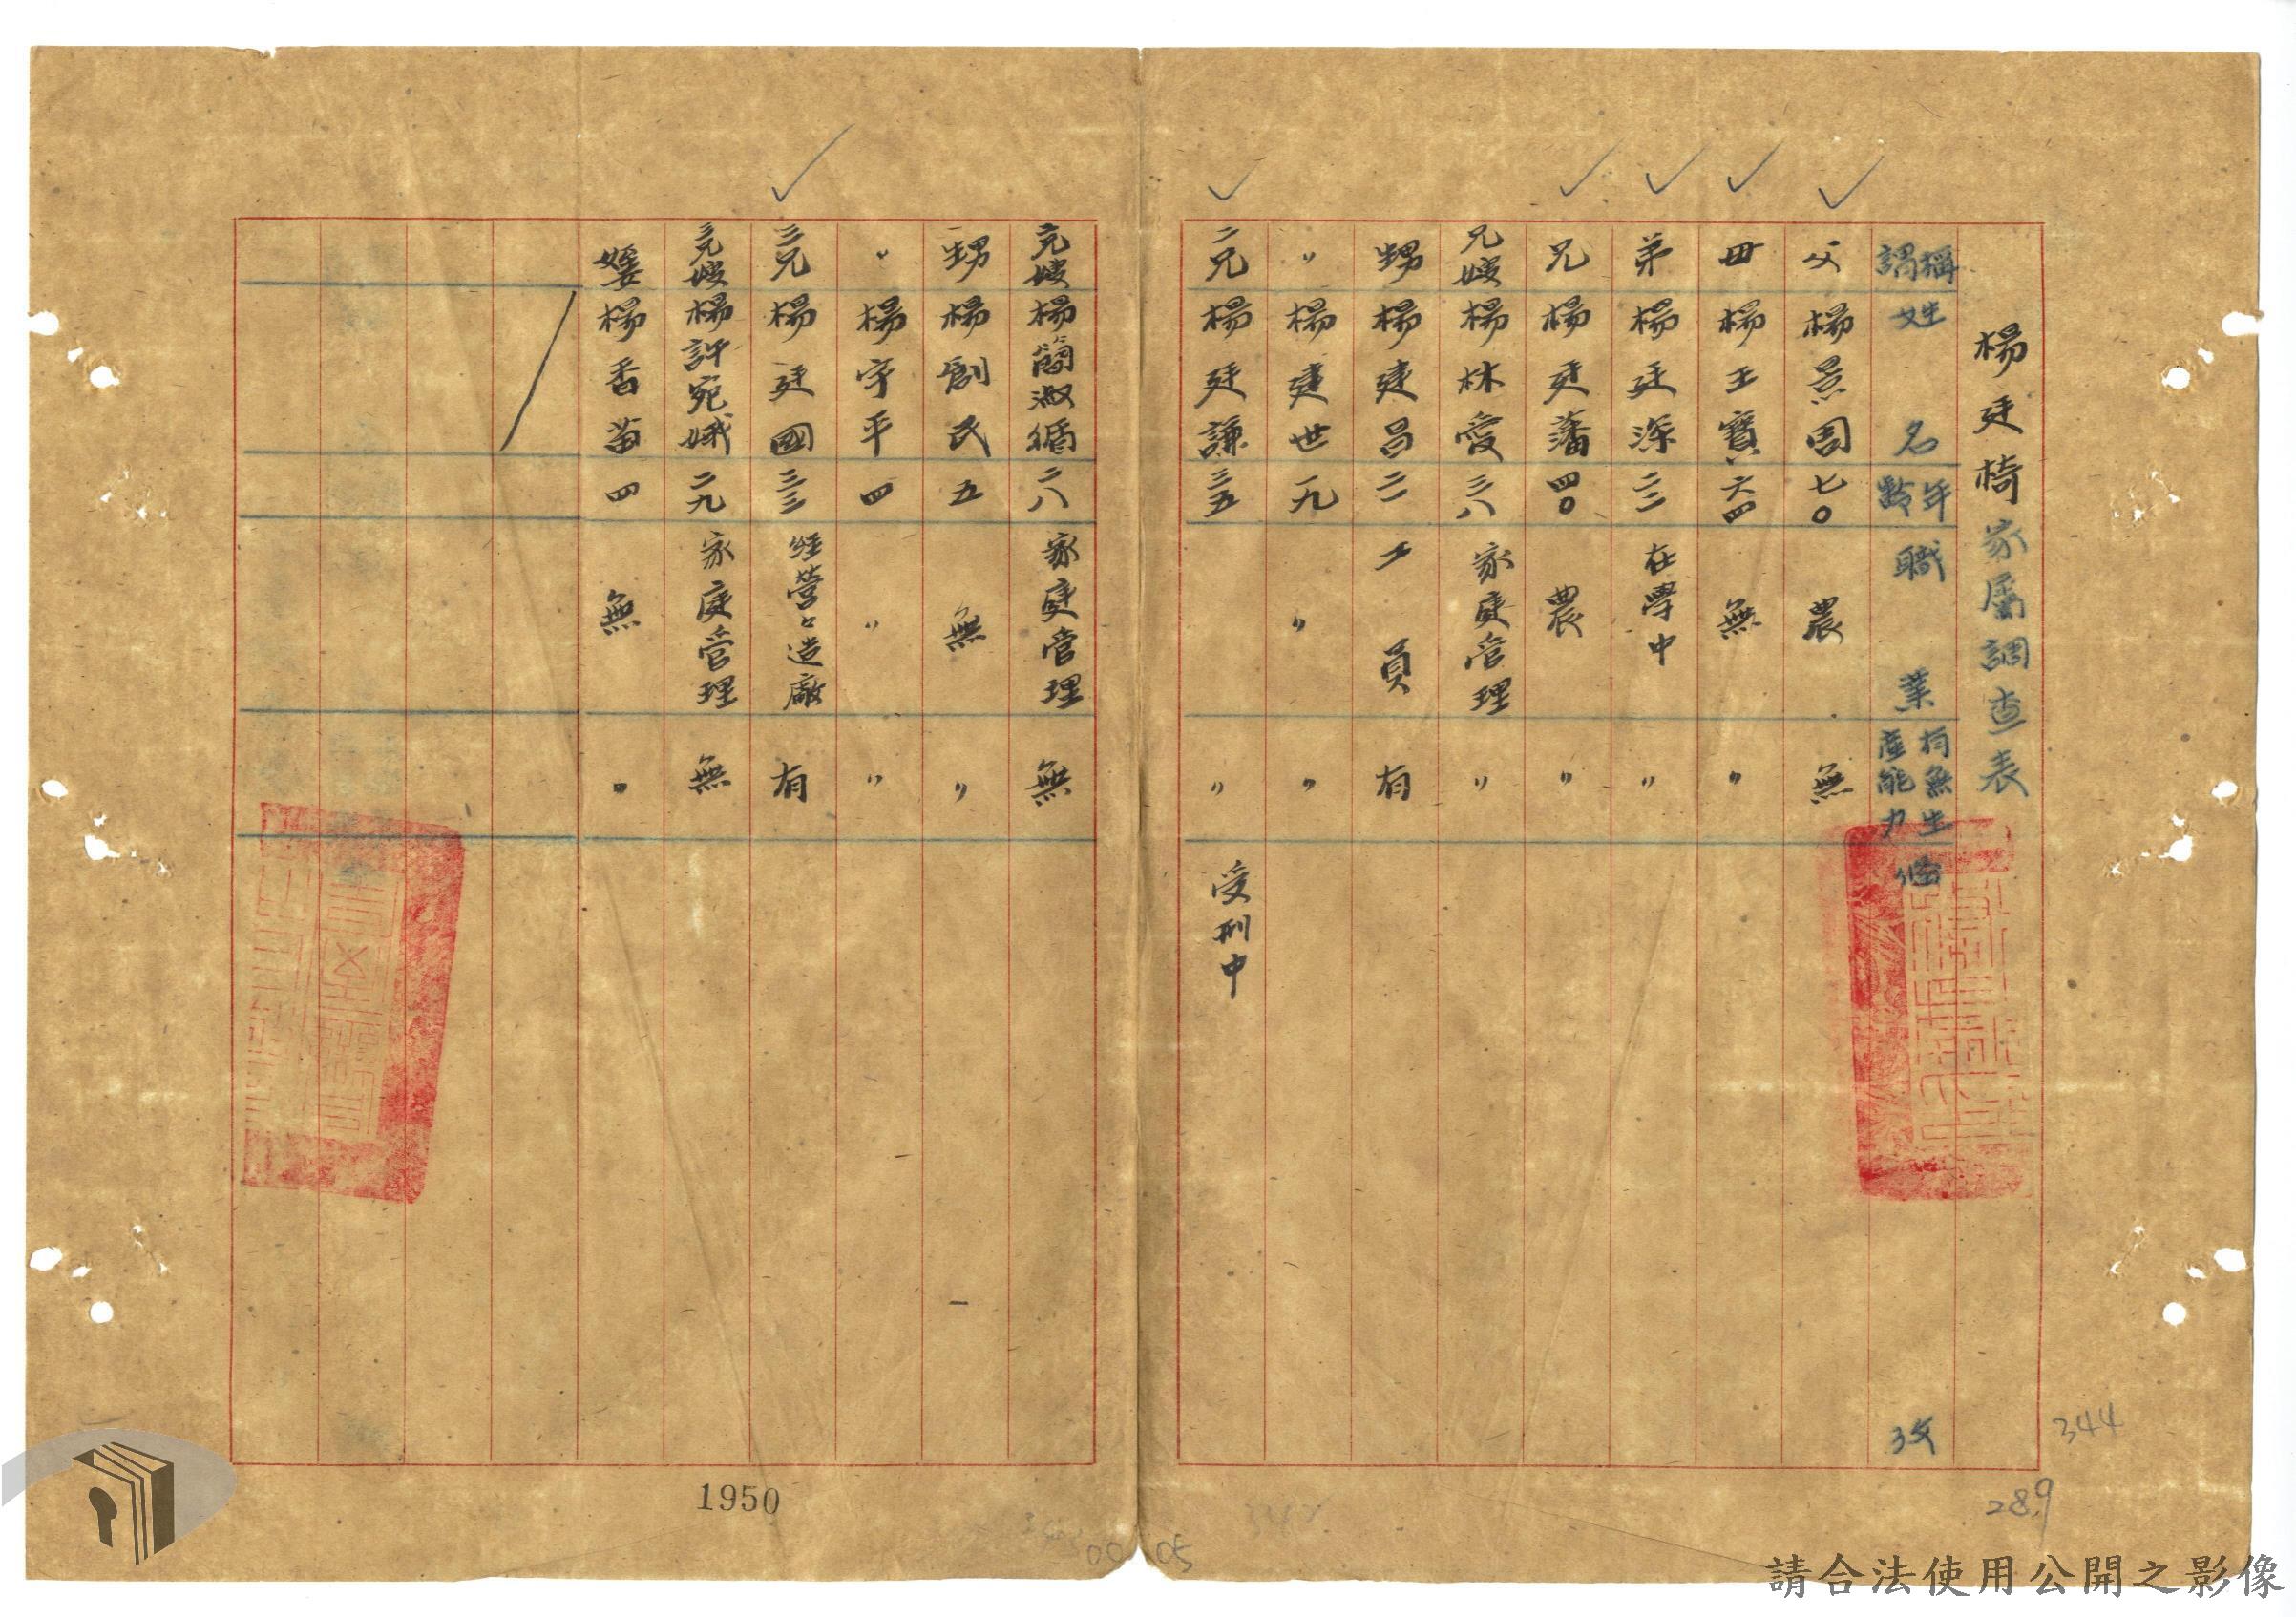 楊廷椅家屬調查表
稱謂 姓名 年齡 職業 有無生產能力 備攷
父 楊景周 七〇 農 無
母 楊王寶 六四 無 〃
弟 楊廷深 二二 在學中 〃
兄 楊廷藩 四〇 農 〃
兄嫂 楊林愛 三八 家庭管理 〃
甥 楊建昌 二一 工員 有
〃 楊建世 一九 〃 〃
二兄 楊廷謙 三五 〃 受刑中
二兄嫂 楊簡淑循 二八 家庭管理 無
甥 楊創民 五 無 〃
〃 楊守平 四 〃 〃
三兄 楊廷國 三三 經營營造廠 有
三兄嫂 楊許宛娥 二九 家庭管理 無
楊香苗 四 無 〃
344
289
1950
00 05
請合法使用公開之影像